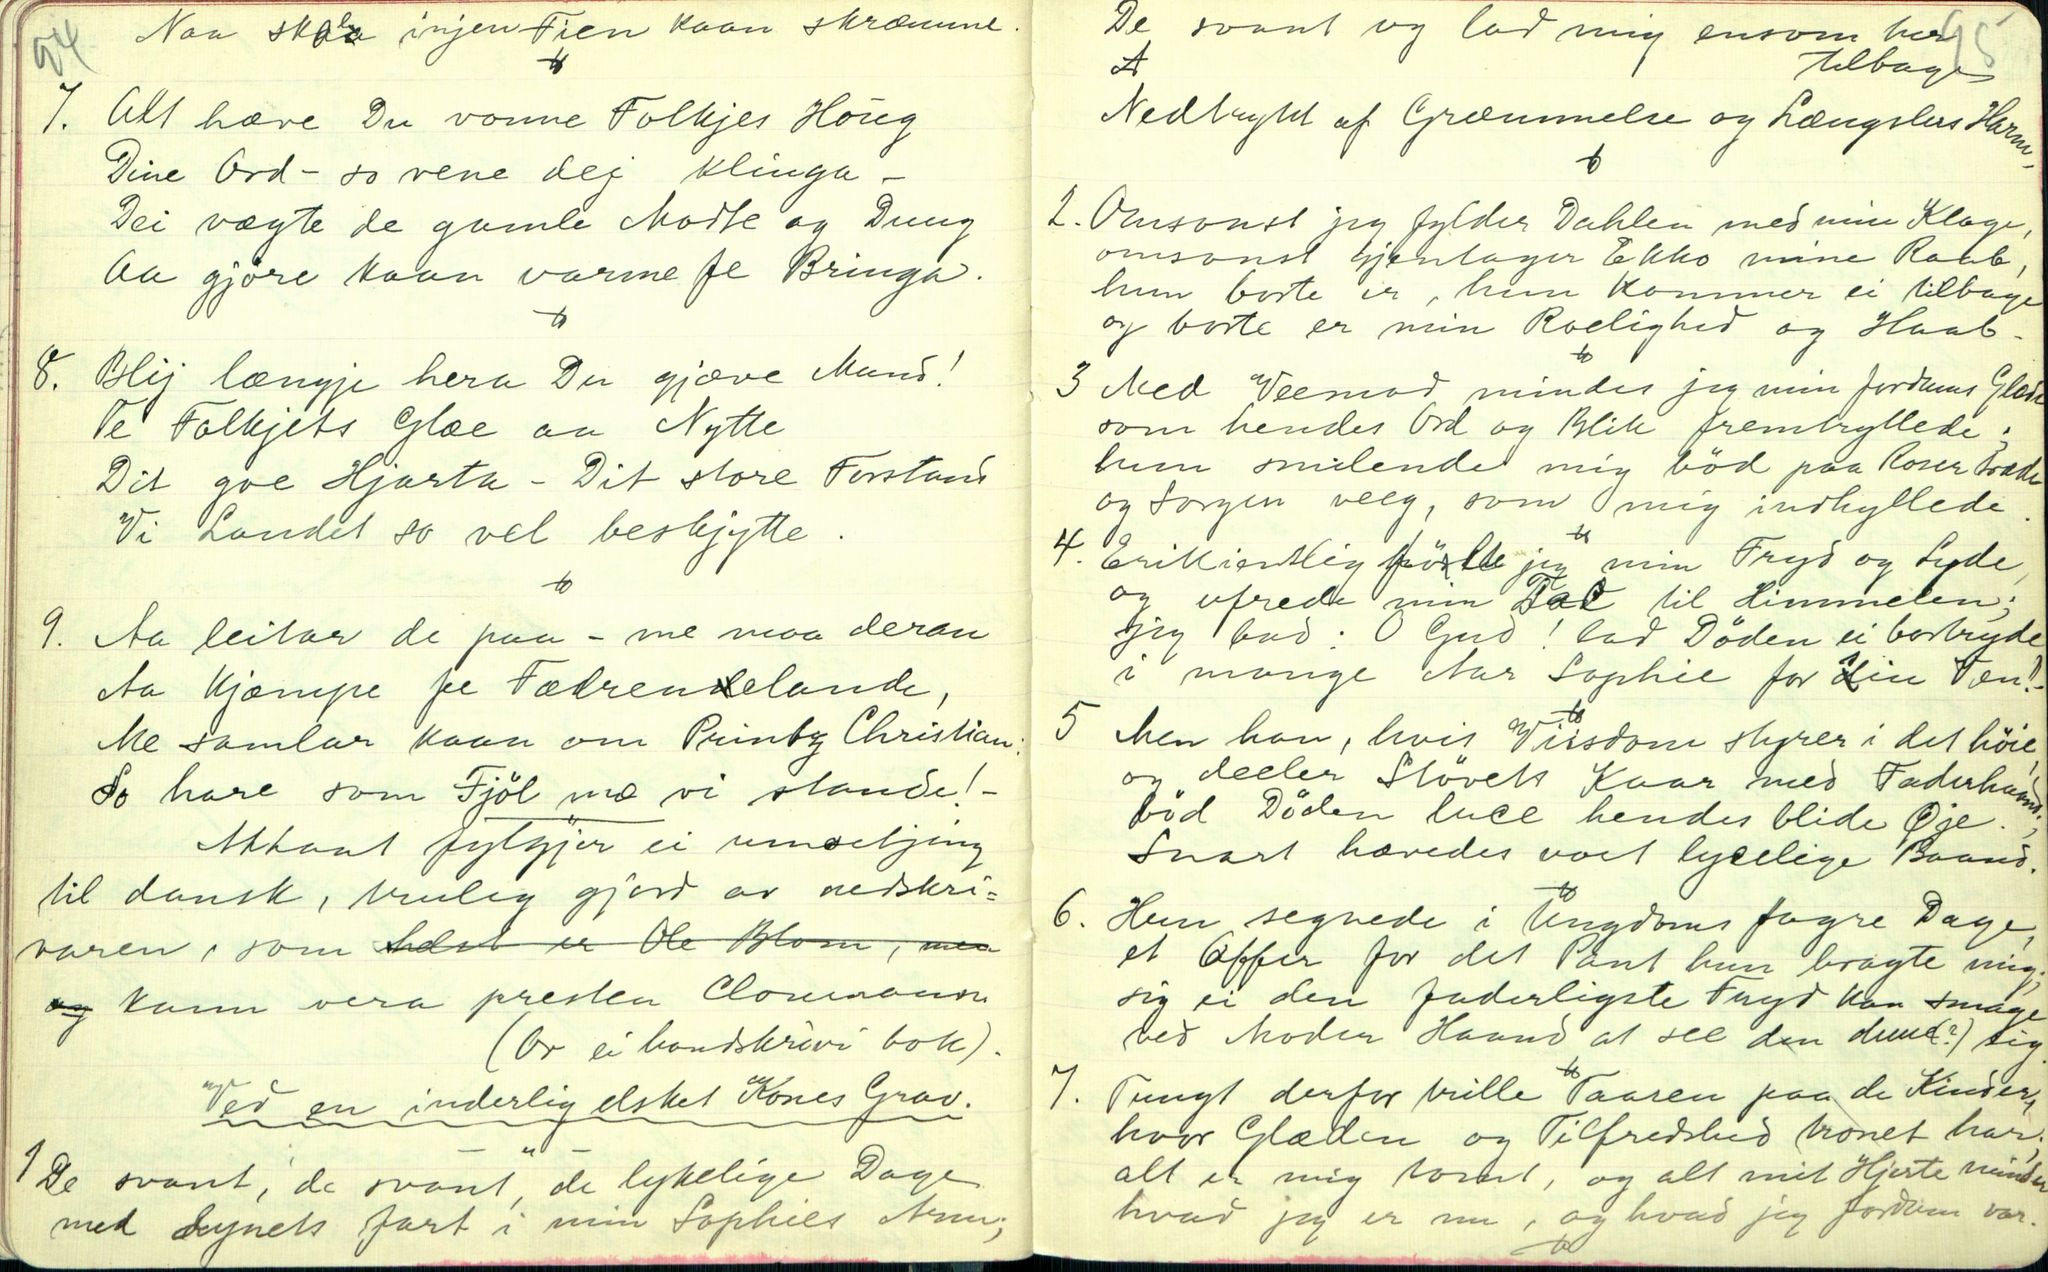 94
Naa skala injen Fien kaan skræmme.
7. Alt hæve Du vonne Folkjes Houg
Dine Ord – so vene dei klinga –
Dei vægte de gamle Modte og Dung
Aa gjöre kaan varme fe Bringa.
8. Blij længje hera Du gjæve Mand!
Te Folkjets Glæe aa Nytte
Dit goe Hjarta – Dit store Forstand
Vi Landet so vel beskjytte.
9. Aa leitar de paa – me maa deran
Aa Kjæmpe fe Fædrenelande,
Me samlar kaan om Printz Christian:
So hare som Fjöl mæ vi stande! –
Attaat fylgjer ei umsetjing
til dansk, truleg gjord av nedskri=
varen, som helst er Ole Blom, men
og kann vera presten Clonmann
(Or ei handskrivi bok).
Ved en inderlig elsket Kones Grav.
1 De svant, de svant, de lykelige Dage
med Lynets fart i min Sophies Arm;
95
De svant og lod mig ensom her
tilbage
Nedtrykt af Græmmelse og Længslers Harm,
2. Omsonst jeg fylder Dahlen med min Klage,
omsonst gjentager Ekko mine Raab,
hun borte er, hun kommer ei tilbage
og borte er min Roelighed og Haab –
3 Med Veemod mindes jeg min fordums Glæde
som hendes Ord og Blik fremtryllede;
hun smilende mig böd paa Roser træde
og Sorgen veeg, som mig indhyllede.
4. Erkientlig fölte jeg min Fryd og Lyde,
og ofrede min Tak til Himmelen;
jeg bad: O Gud! lad Döden ei bortryde
i mange Aar Sophie for sin Ven! –
5 Men han, hvis Viisdom styrer i det höie,
og deeler Stövets Kaar med Faderhaand;
böd Döden luce hendes blide Øje.
Snart hævedes vort lycelige Baand.
6. Hun segnede i Ungdoms fagre Dage,
et Offer for det Pant hun bragte mig;
sig ei den faderligste Fryd kan smage
ved Moder Haand at see den dune(?) sig.
7. Tungt derfor trille Taaren paa de Kinder,
hvor Glæden og Tilfredshed tronet har;
alt er mig tomt, og alt mit Hjerte minder
hvad jeg er nu, og hvad jeg fordum var.